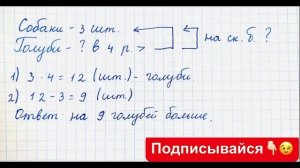 Собаки - 3 шт.
Голуби - ? в 4 р. >
на ск. б. ?
1) 3 · 4 = 12 (шт.) - голуби
2) 12 - 3 = 9 (шт.)
Ответ: на 9 голубей больше.
Подписывайся 👇😉